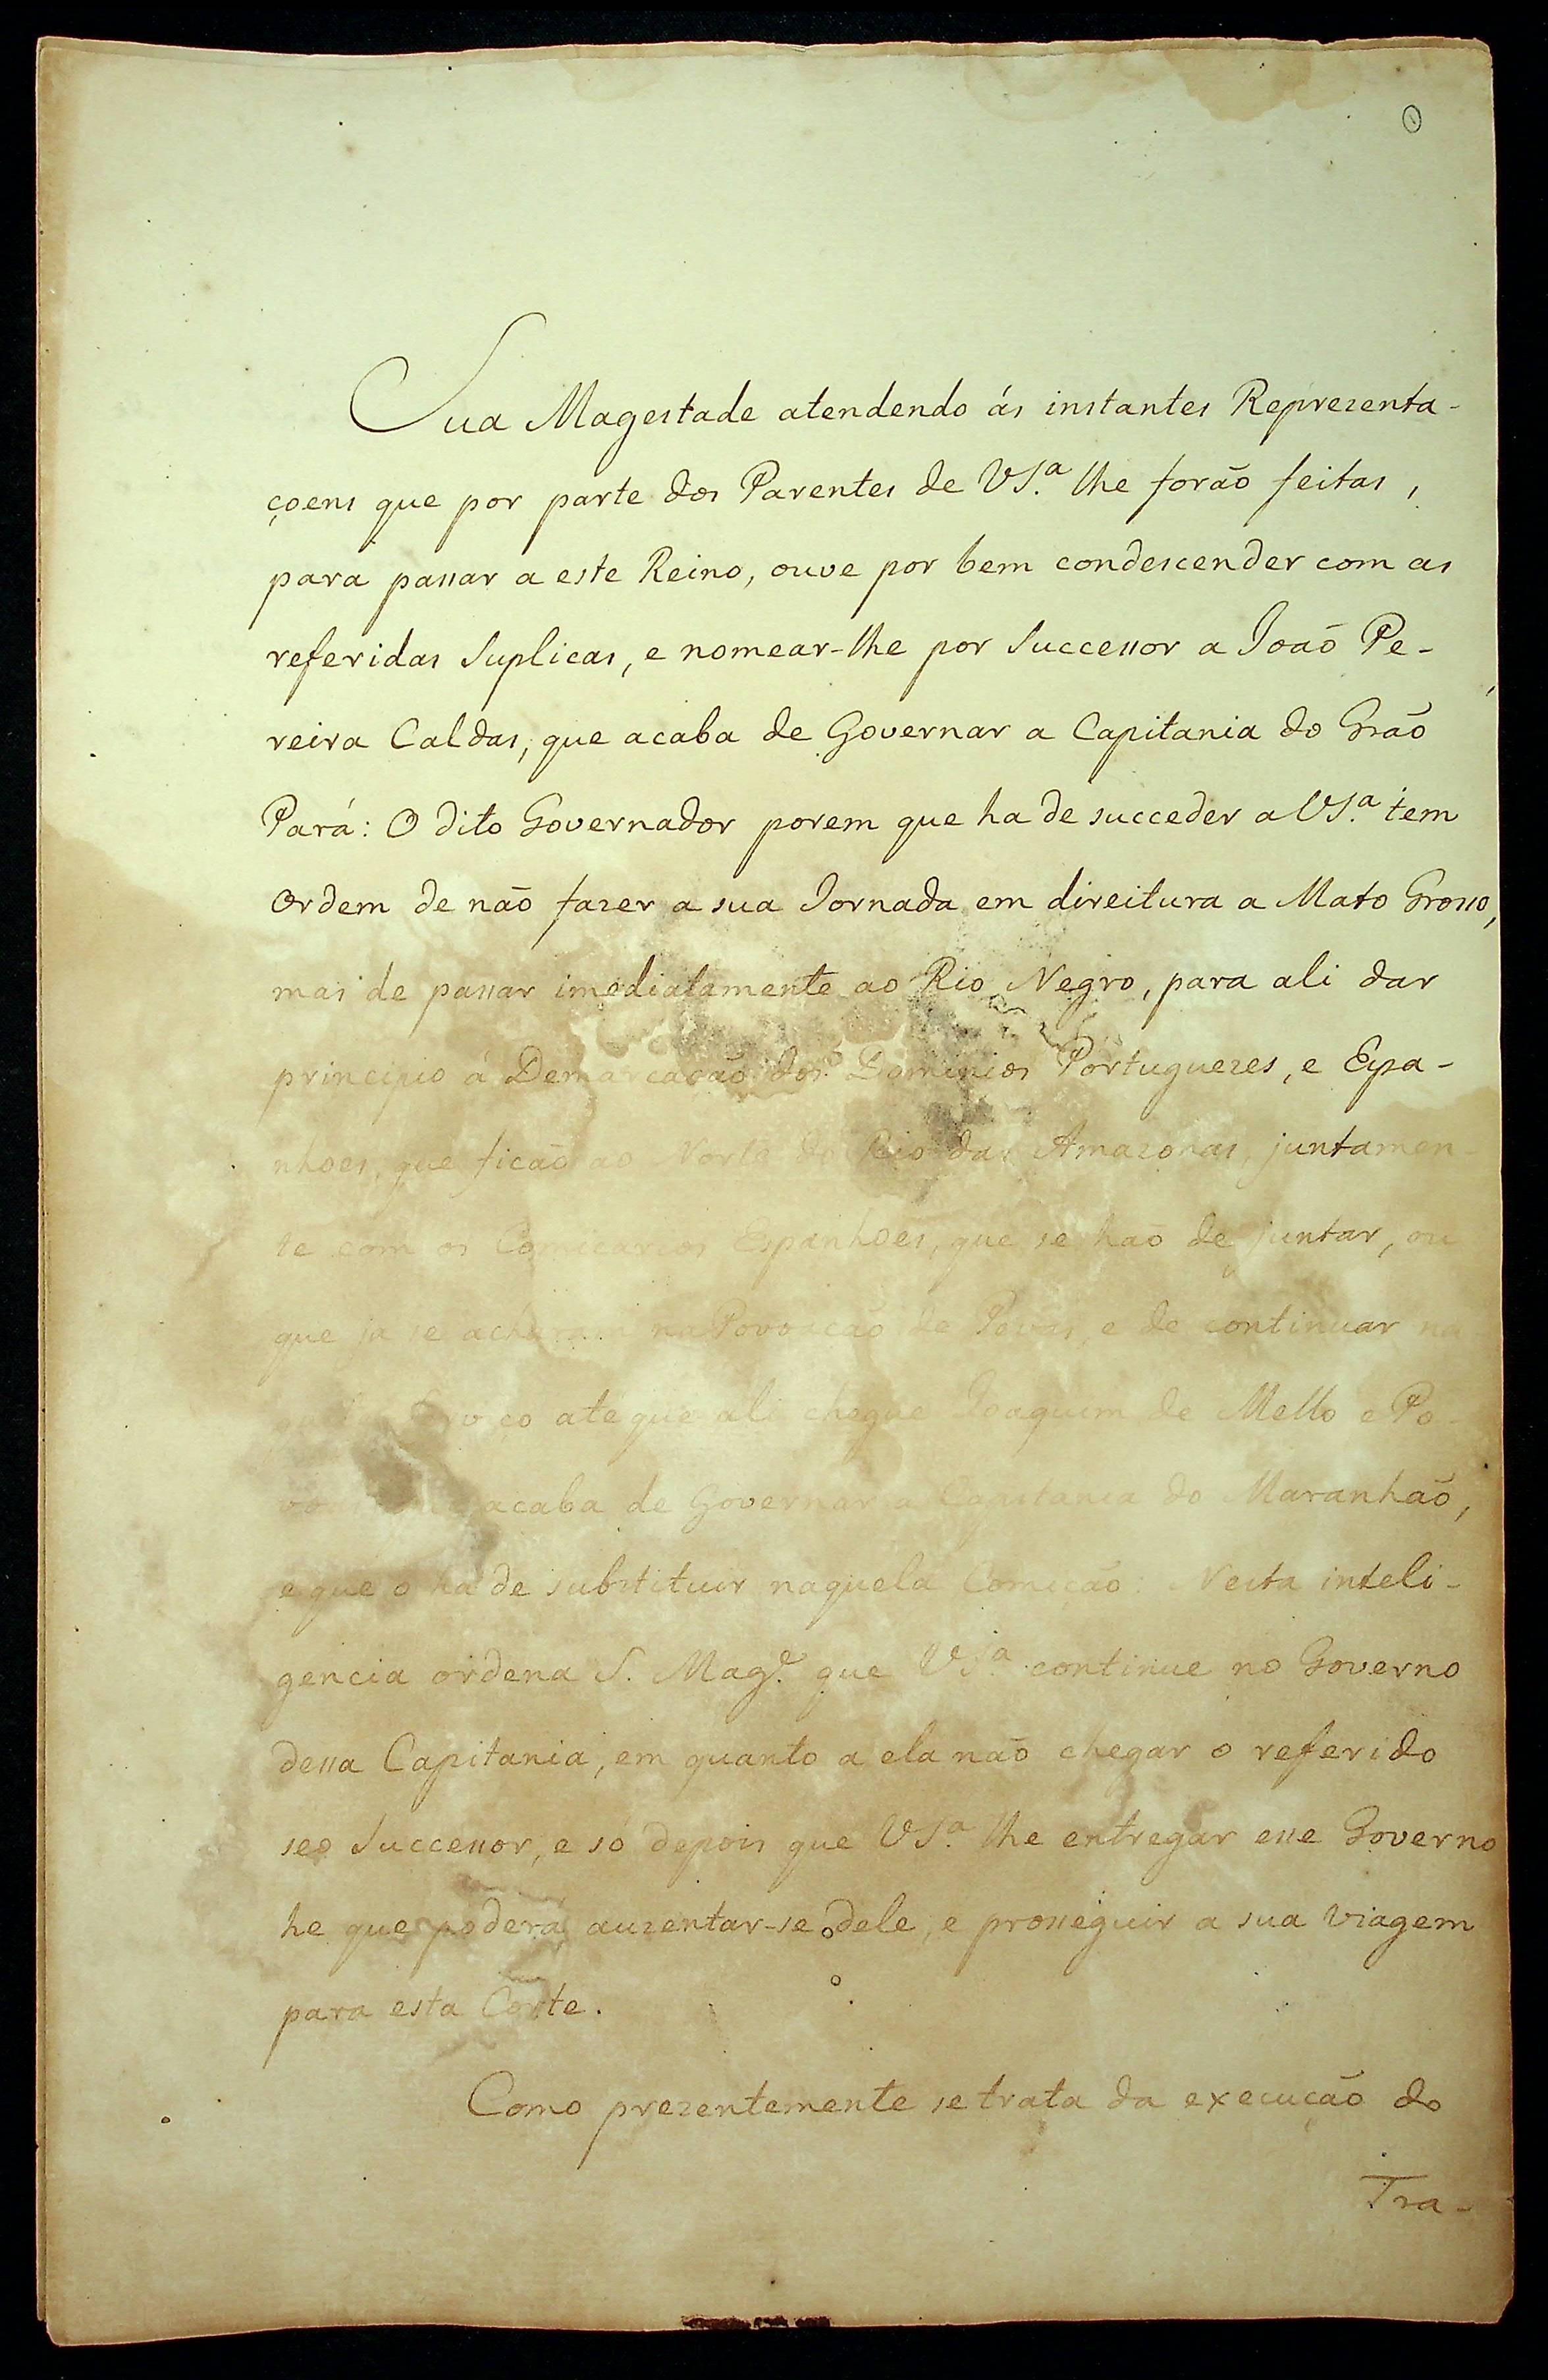 Sua Magestade atendendo ás instantes Reprezenta-
çoens que por parte dos Parentes de VS.ª lhe forão feitas,
para passar a este Reino, ouve por bem condescender com as
referidas Suplicas, e nomear-lhe por Successor a João Pe-
reira Caldas, que acaba de Governar a Capitania do Grão
Pará: O dito Governador porem que ha de succeder a VS.ª tem
Ordem de não fazer a sua Jornada em direitura a Mato Grosso,
mas de passar imediatamente ao Rio Negro, para ali dar
principio á Demarcação dos Dominios Portuguezes, e Espa-
nhoes, que ficão ao Norte do Rio das Amazonas, juntamen-
te com os Comicarios Espanhoes, que se hão de juntar, ou
que ja se na Povoação de e de continuar na
ate que ali chegue Joaquim de Mello e Po-
acaba de Governar a Capitania do Maranhão,
e que o ha de substituir naquela Comicão: Nesta inteli-
gencia ordena S. Mag.e que VS.ª continue no Governo
dessa Capitania, em quanto a ela não chegar o referido
seo Successor, e só depois que VS.ª lhe entregar esse Governo
he que poderá auzentar-se dele, e prosseguir a sua viagem
para esta Corte.
Como prezentemente se trata da execução do
Tra-